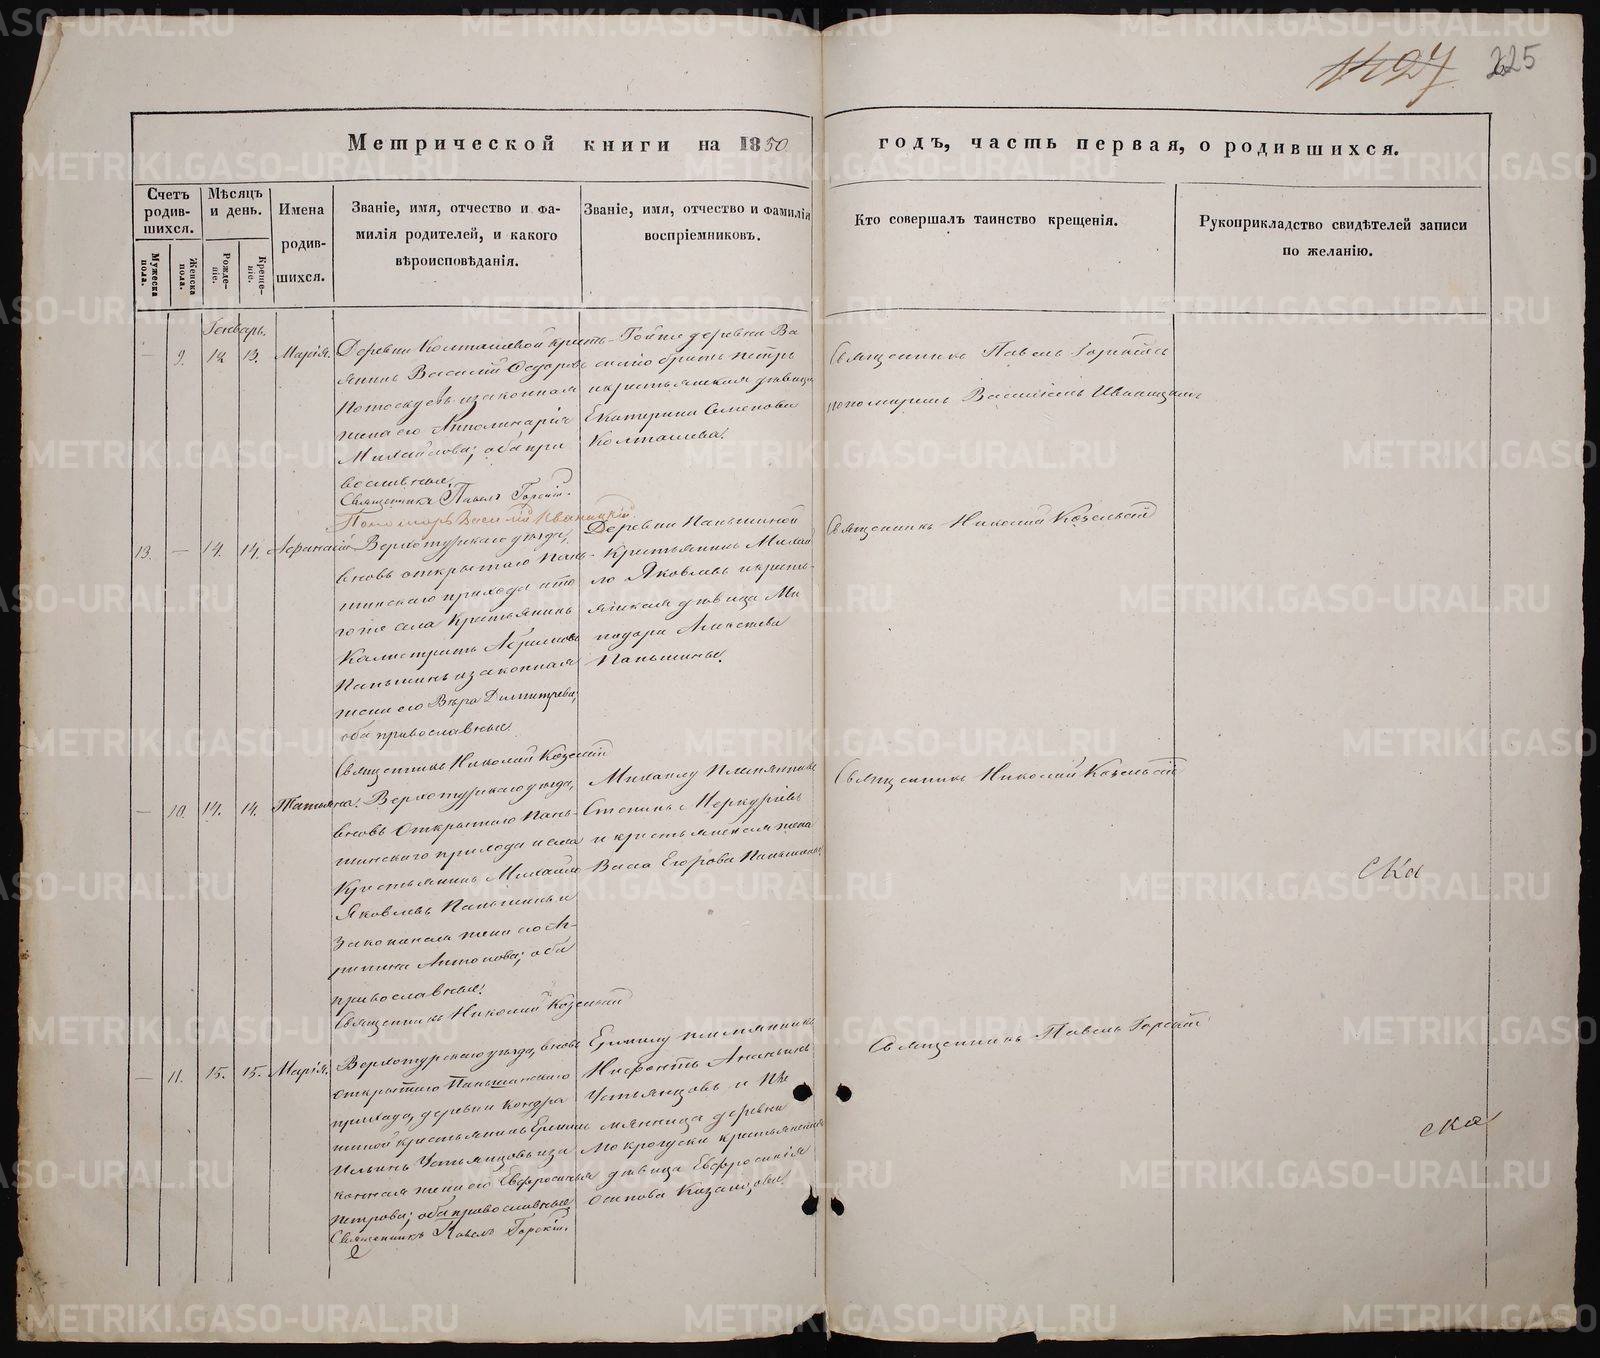 1427 225
Метрической книги на 1850
годъ, часть первая, о родившихся.
Счетъ родившихся.
Мужеска пола.
Женска пола.
Мѣсяцъ и день.
Рожденіе.
Крещеніе.
Имена родившихся.
Званіе, имя, отчество и фамилія родителей, и какого вѣроисповѣданія.
Званіе, имя, отчество и фамилія воспріемниковъ.
Кто совершалъ таинство крещенія.
Рукоприкладство свидѣтелей записи по желанію.
Генварь.
— 9. 12. 13. Марія.
Деревни Колташевой кресть-
янинъ Василій Федоровъ
и законная
жена его Апполинарія
Михайлова; оба пра
вославные.
Священникъ Павелъ Горскій.
Пономарь Василій Иваницкій
Тойже деревни Ва
силіо братъ Петръ
и крестьянская дѣвица
Екатерина Семенова
Колташева.
Священникъ Павелъ Горскій съ
пономаремъ Василіемъ Иваницкимъ
13. — 14. 14. Афанасій
Верхотурскаго уѣзда,
вновь открытаго Пань-
шинскаго прихода и то
гоже села Крестьянинъ
Калистратъ Абрамовъ
Паньшинъ и законная
жена его Вѣра Димитрева;
оба православные.
Священникъ Николай Козельскій
Деревни Паньшиной
Крестьянинъ Михаи
ло Яковлевъ и кресть-
янская дѣвица Ми
нодора Алексѣева
Паньшины.
Священникъ Николай Козельскій
— 10. 14. 14. Татьяна.
Верхотурскаго уѣзда,
вновь Открытаго Пань-
шинскаго прихода и села
Крестьянинъ Михаилъ
Яковлевъ Паньшинъ и
законная жена его А-
рипина Антонова; оба
православные.
Священникъ Николай Козельскій
Михаилу Племянникъ
Степанъ Меркурьевъ
и крестьянская жена
Васса Егорова Паньшины.
Священникъ Николай Козельскій
— 11. 15. 15. Марія.
Верхотурскаго уѣзда, вновь
открытаго Паньшинскаго
прихода, деревни Кондра
шиной крестьянинъ Ермилъ
Ильинъ Устьянцовъ и за
конная жена его Евфросинья
Петрова; оба православные
Священникъ Павелъ Горскій.
Ермилу племянникъ
Нифонтъ Ананьинъ
Устьянцовъ и пле
мянница деревни
Мокроуски крестьянская
дѣвица Евфросинія
Осипова Казанцова.
Священникъ Павелъ Горскій